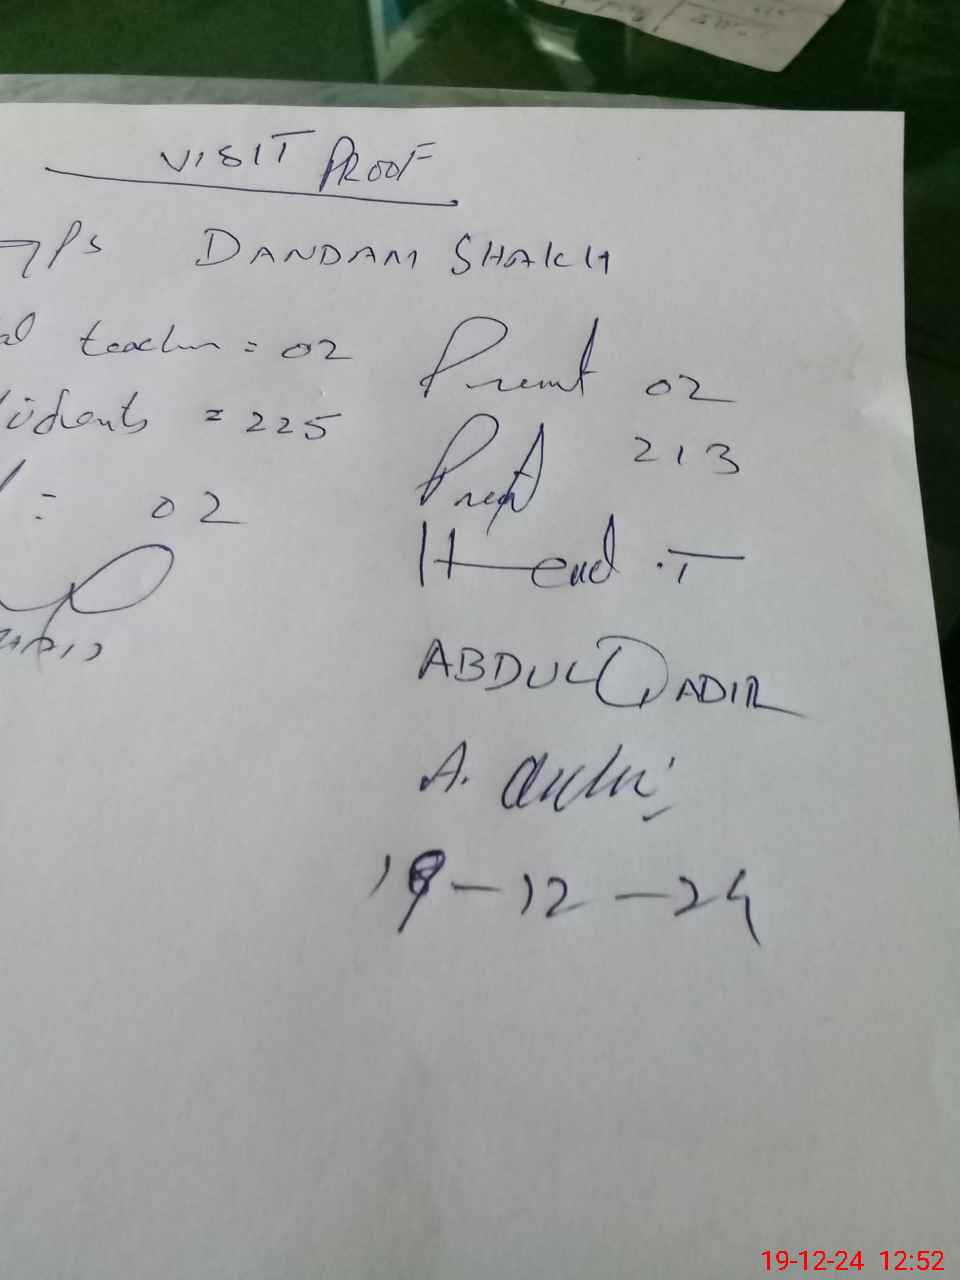 VISIT PROOF
PS DANDAM SHAKH
teacher = 02 Present 02
students = 225 Present 213
= 02
Head .T
ABDUL QADIR
A.
19-12-24
19-12-24 12:52